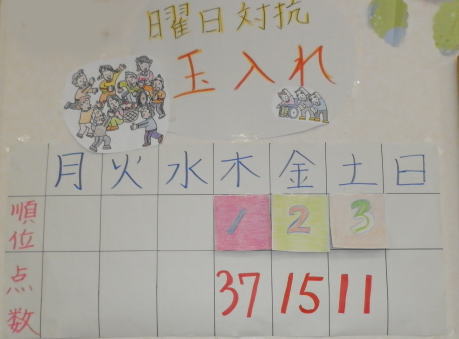 曜日対抗
玉入れ
月 火 水 木 金 土 日
順位 1 2 3
点数 37 15 11